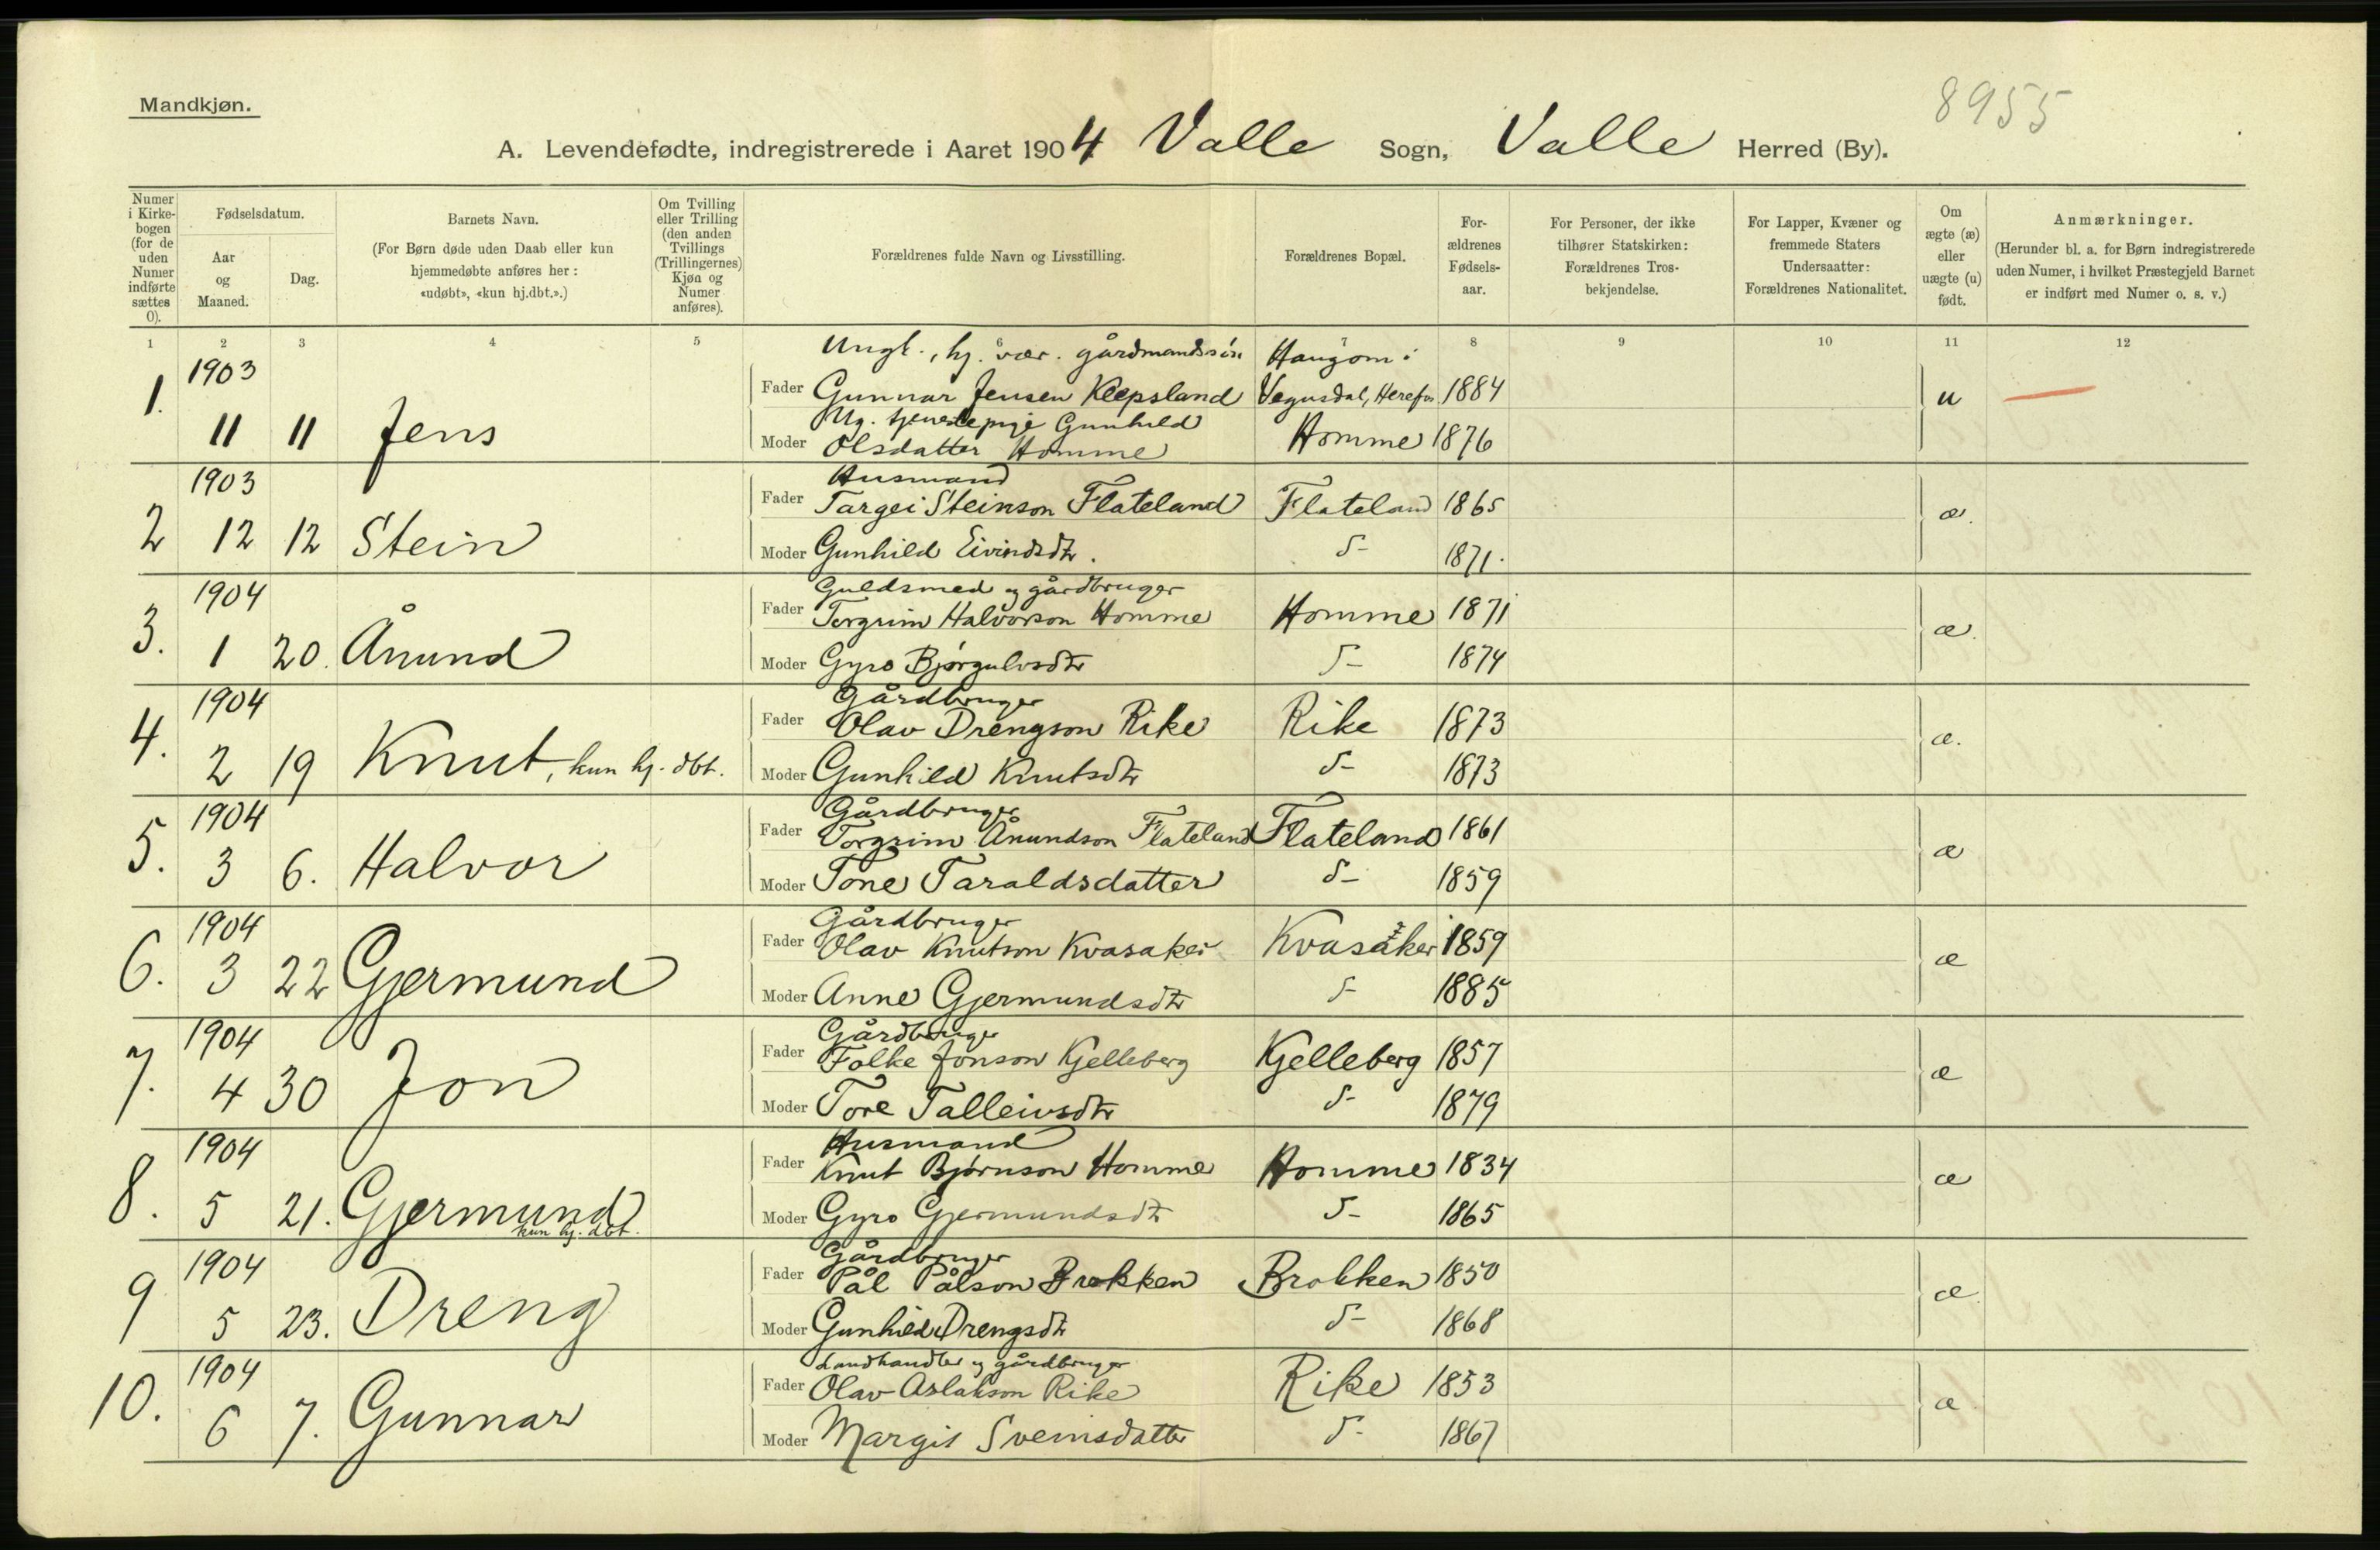 8955
Mandkjøn.
A. Levendefødte, indregistrerede i Aaret 1904 Valle Sogn, Valle Herred (By).
Numer i Kirke-bogen (for de uden Numer indførte sættes 0).
Fødselsdatum.
Aar og Maaned.
Dag.
Barnets Navn.
(For Børn døde uden Daab eller kun hjemmedøbte anføres her: «udøbt», «kun hj.dbt.».)
Om Tvilling eller Trilling (den anden Tvillings (Trillingernes) Kjøn og Numer anføres).
Forældrenes fulde Navn og Livsstilling.
Forældrenes Bopæl.
For-ældrenes Fødsels-aar.
For Personer, der ikke tilhører Statskirken: Forældrenes Tros-bekjendelse.
For Lapper, Kvæner og fremmede Staters Undersaatter: Forældrenes Nationalitet.
Om ægte (æ) eller uægte (u) født.
Anmærkninger.
(Herunder bl. a. for Børn indregistrerede uden Numer, i hvilket Præstegjeld Barnet er indført med Numer o. s. v.)
1 2 3 4 5 6 7 8 9 10 11 12
Ungk., hj. vær. gårdmandssøn Haugom i
1. 1903 Fader Gunnar Jensen Klepsland Vegusdal, Herefos 1884 u
11 11 Jens Ug. tjenestepige Gunhild
Moder Olsdatter Homme Homme 1876
1903 Husmand
Fader Targei Steinson Flateland Flateland 1865 æ.
2 12 12 Stein Moder Gunhild Eivindsdtr. d- 1871.
1904 Guldsmed og gårdbruger
Fader Torgrim Halvorson Homme Homme 1871 æ.
3. 1 20. Ånund Moder Gyro Bjørgulvsdtr d- 1874
1904 Gårdbruger
Fader Olav Drengson Rike Rike 1873 æ.
4. 2 19 Knut, kun hj. dbt. Moder Gunhild Knutsdtr d- 1873
1904 Gårdbruger
Fader Torgrim Ånundson Flateland Flateland 1861 æ
5. 3 6. Halvor Moder Tone Taraldsdatter d- 1859
1904 Gårdbruger
Fader Olav Knutson Kvasaker Kvasaker 1859 æ
6. 3 22 Gjermund Moder Anne Gjermundsdtr d- 1885
1904 Gårdbruger
Fader Folke Jonson Kjelleberg Kjelleberg 1857 æ
7. 4 30 Jon Moder Tore Talleivsdtr d- 1879
1904 Husmand
Fader Knut Bjørnson Homme Homme 1834 æ
8. 5 21. Gjermund kun hj. dbt. Moder Gyro Gjermundsdtr d- 1865
1904 Gårdbruger
Fader Pål Pålson Brokken Brokken 1850 æ.
9 5 23. Dreng Moder Gunhild Drengsdtr d- 1868
1904 Landhandler og gårdbruger
Fader Olav Aslakson Rike Rike 1853 æ
10. 6 7. Gunnar Moder Margit Sveinsdatter d- 1867